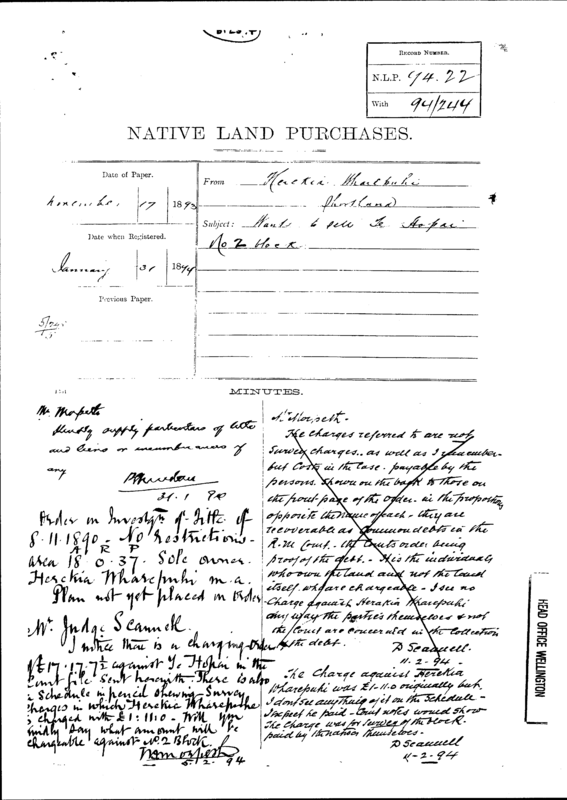 RECORD NUMBER.
N.L.P. 94.22
With 94/244
NATIVE LAND PURCHASES.
Date of Paper.
November 17 1893
Date when Registered.
January 31 1894
Previous Paper.
From Herekia Wharepuhi
Shortland
Subject: Wants to sell Te Hopai
No 2 block
MINUTES.
Mr Morpeth
Kindly supply particulars of title
and liens or incumbrances if
any
31.1
Order on Investign of Title of
8.11.1890 - No Restrictions -
A R P
area 18 0.37. Sole owner.
Herekia Wharepuhi m.a.
Plan not yet placed on Order
Mr. Judge Scannell
I notice there is a charging Order
of £17.17.7½ against Te Hopai in the
Court file sent herewith. There is also
a Schedule in pencil shewing Survey
Charges in which Herekia Wharepuhi
is charged with £1:11:0 - Will you
kindly say what amount will be
chargeable against No. 2 Block.
5.2.94
Mr Morpeth -
The Charges referred to are not
Survey charges, as well as I remember
but Costs in the Case. payable by the
persons shown on the back to those on
the front page of the order. in the proportions
opposite the name of each - they are
recoverable as Common debts in the
R.M. Court. - the Courts order being
proof of the debt. - It is the individuals
who own the land and not the land
itself who are chargeable - I see no
Charge against Herekia Wharepuhi
any way the parties themselves & not
the Court are concerned in the collection
of the debt.
D Scannell
11.2.94 -
The Charge against Herekia
Wharepuhi was £1.11.0 originally but
I dont see anything of it on the Schedule -
I expect he paid - Court notes would show
The Charge was for Survey of the block.
paid by the natives themselves -
D Scannell
11-2.94
HEAD OFFICE WELLINGTON